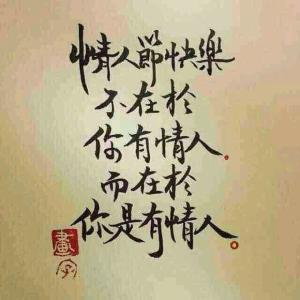 情人節快樂
不在於
你有情人。
而在於
你是有情人。
畫字